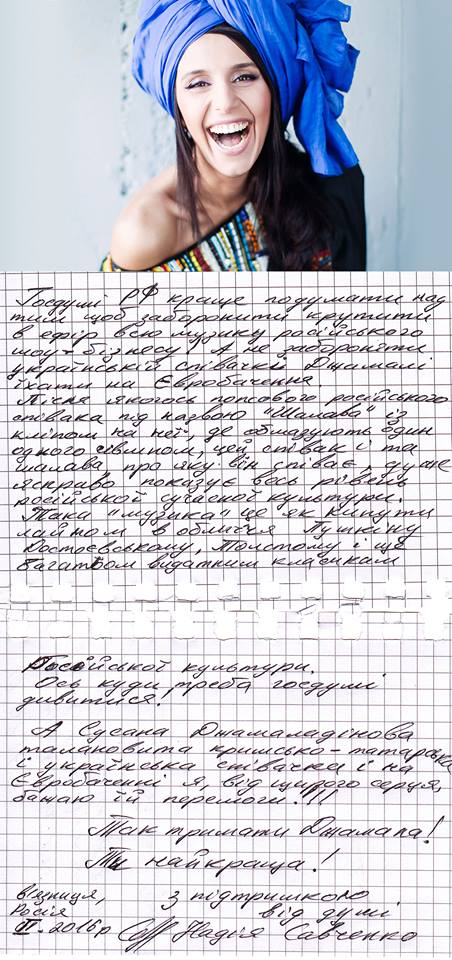 Госдумі РФ краще подумати над
тим щоб заборонити крутити
в ефір всю музику російського
шоу-бізнесу! А не забороняти
українській співачкі Джамалі
їхати на Євробачення.
Пісня якогось попсового російського
співака під назвою "Шалава" із
кліпом на неї, де обмазують один
одного , цей співак і та
шалава, про яку він співає, дуже
ясправо показує весь рівень
російської сучасної культури.
Така "музика" це як кинути
лайном в обличчя Пушкіну
Достоєвському, Толстому і ще
багатьом видатним класикам
Російської культури.
Ось куди треба госдумі
дивитися.
А Сусана Джамаладінова
талановита кримсько-татарська
і українська співачка і на
Євробаченні я, від щирого серця,
бажаю їй перемоги!!!
Так тримати Джамала!
Ти найкраща!
в'язниця,
Росія
ІІІ-2016р
з підтримкою
від думі
Надія Савченко